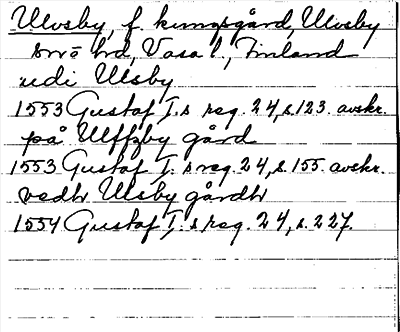 Ulvsby, f. kungsgård, Ulvsby
hrd, Vasa l., Finland
udi Ulsby
1553 Gustaf I.s reg. 24, s. 123. avskr.
på Ulffzby gård
1553 Gustaf I.s reg. 24, s. 155. avskr.
vedh Ulsby gårdh
1554 Gustaf I.s reg. 24, s. 227.